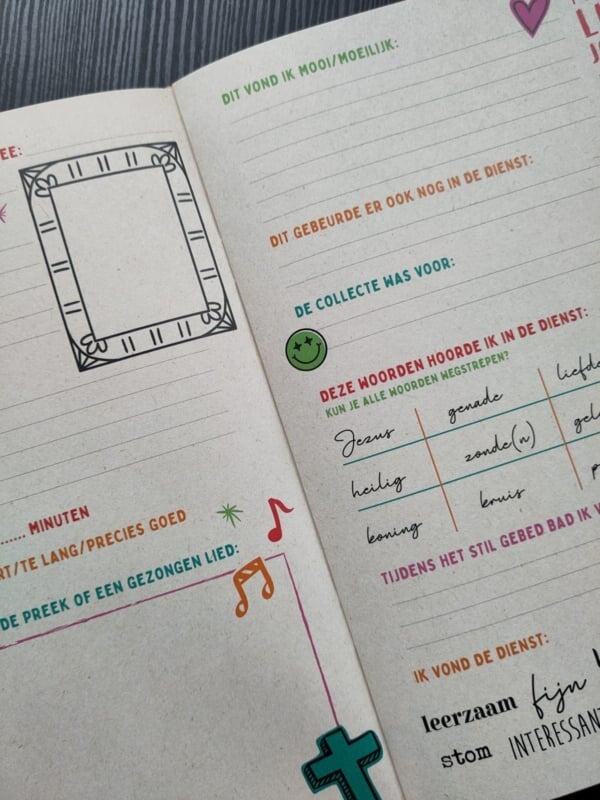 EE:
MINUTEN
RT/TE LANG/PRECIES GOED
DE PREEK OF EEN GEZONGEN LIED:
DIT VOND IK MOOI/MOEILIJK:
DIT GEBEURDE ER OOK NOG IN DE DIENST:
DE COLLECTE WAS VOOR:
DEZE WOORDEN HOORDE IK IN DE DIENST:
KUN JE ALLE WOORDEN WEGSTREPEN?
Jezus genade liefde
heilig zonde(n) gel
koning kruis
TIJDENS HET STIL GEBED BAD IK V
IK VOND DE DIENST:
leerzaam fijn
stom INTERESSANT